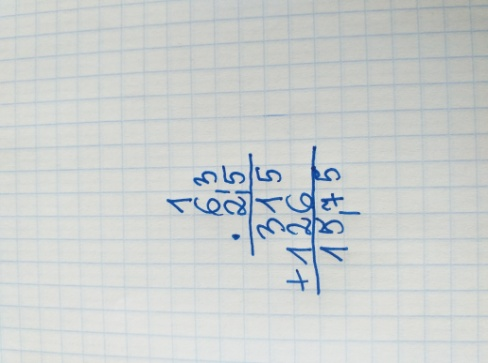 1
6,3
· 2,5
315
+ 126
15,75